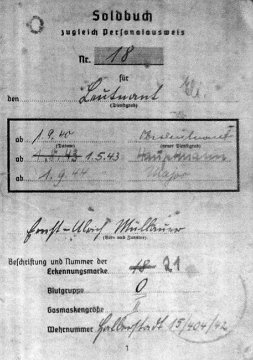 Soldbuch
zugleich Personalausweis
Nr. 18
für
den Leutnant
(Dienstgrad)
ab 1.9.40 Oberleutnant
(Datum) (neuer Dienstgrad)
ab 1.5.43 1.5.43 Hauptmann
ab 1.9.44 Major
Ernst-Ulrich Müllauer
(Vor- und Zuname)
Beschriftung und Nummer der
Erkennungsmarke 18 21
Blutgruppe O
Gasmaskengröße II
Wehrnummer Halberstadt 15/404/42
1